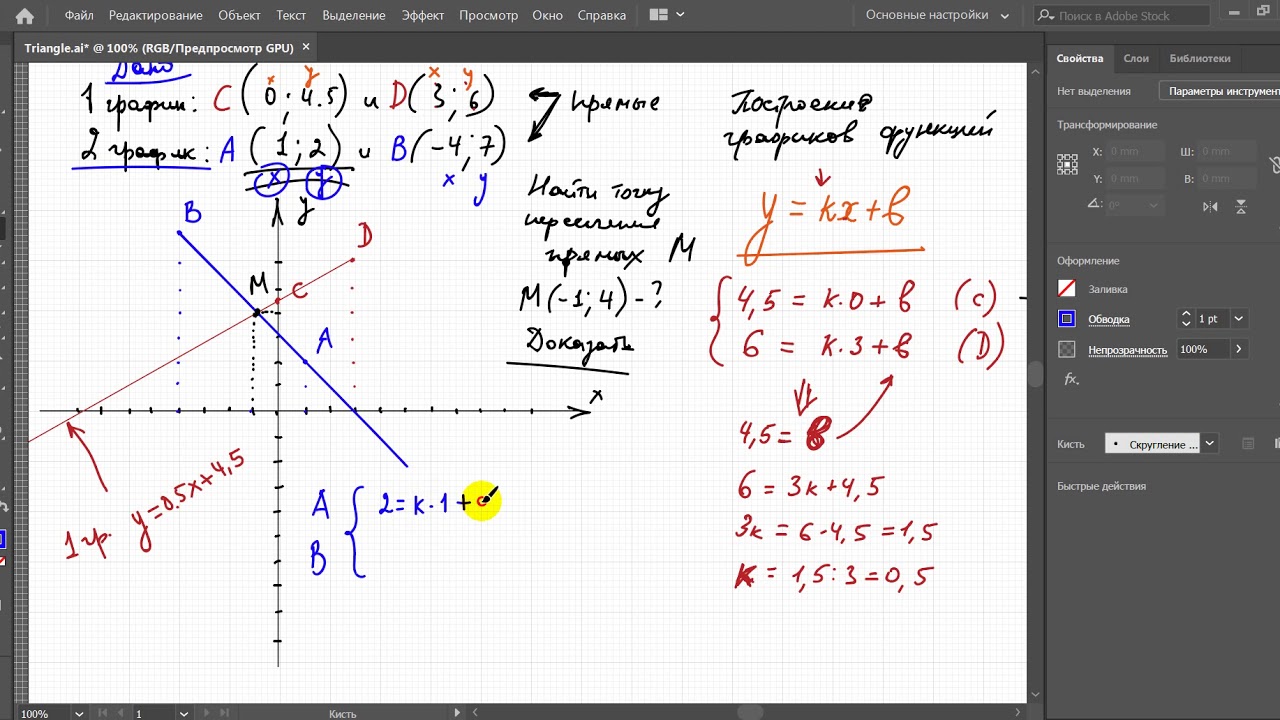 Файл Редактирование Объект Текст Выделение Эффект Просмотр Окно Справка
Основные настройки
Поиск в Adobe Stock
Triangle.ai* @ 100% (RGB/Предпросмотр GPU) ×
Дано
x y x y
1 график: C(0; 4.5) и D(3; 6)
2 график: A(1; 2) и B(-4; 7)
x y x y
прямые
Найти точку
пересечения
прямых M
M(-1; 4) - ?
Доказать
Построение
графиков функций
y = kx + b
4,5 = k·0 + b (C)
6 = k·3 + b (D)
4,5 = b
6 = 3k + 4,5
3k = 6 - 4,5 = 1,5
k = 1,5 : 3 = 0,5
B
y
D
M
C
A
x
1 гр. y=0.5x+4,5
A 2 = k·1 +
B
Свойства Слои Библиотеки
Нет выделения
Параметры инструмент
Трансформирование
X: 0 mm Ш: 0 mm
Y: 0 mm В: 0 mm
0°
Оформление
Заливка
Обводка 1 pt
Непрозрачность 100%
fx.
Кисть Скругление ...
Быстрые действия
100% 1 Кисть